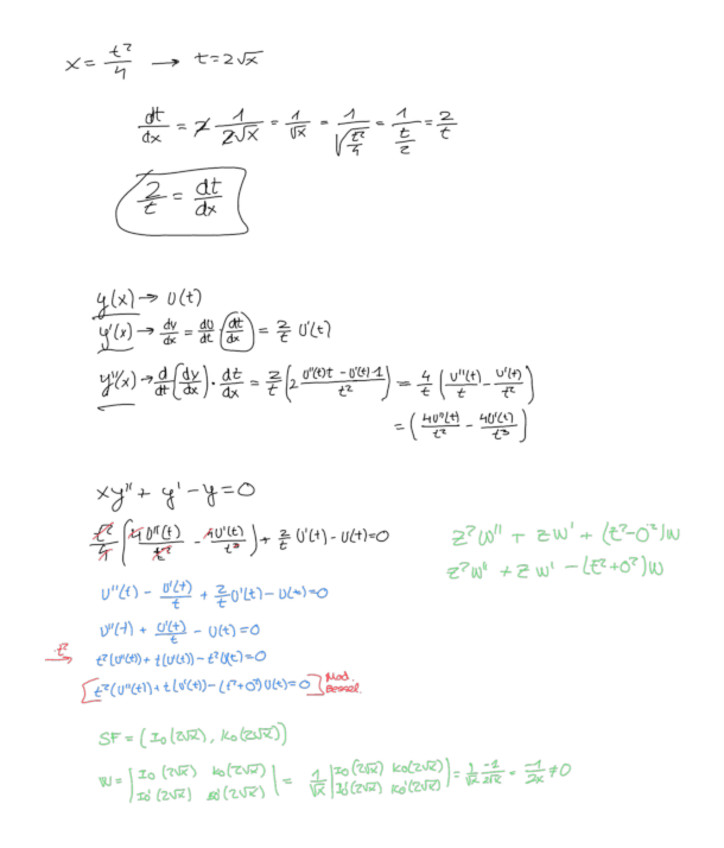 x = t²/4 → t = 2√x
dt/dx = 2 1/(2√x) = 1/√x = 1/√(t²/4) = 1/(t/2) = 2/t
2/t = dt/dx
y(x) → U(t)
y'(x) → dy/dx = dU/dt · dt/dx = 2/t U'(t)
y''(x) → d/dt (dy/dx) · dt/dx = 2/t (2 (U''(t)t - U'(t)·1)/t²) = 4/t (U''(t)/t - U'(t)/t²)
= (4U''(t)/t² - 4U'(t)/t³)
xy'' + y' - y = 0
t²/4 (4U''(t)/t² - 4U'(t)/t³) + 2/t U'(t) - U(t) = 0
z²w'' + zw' + (z²-0²)w
z²w'' + zw' - (z²+0²)w
U''(t) - U'(t)/t + 2/t U'(t) - U(t) = 0
U''(t) + U'(t)/t - U(t) = 0
·t² → t²(U''(t)) + t(U'(t)) - t²U(t) = 0
[t²(U''(t)) + t(U'(t)) - (t²+0²)U(t) = 0] Mod. Bessel.
SF = (I₀(2√x), K₀(2√x))
W = |I₀(2√x) K₀(2√x)| = 1/√x |I₀(2√x) K₀(2√x)| = 1/√x · -1/(2√x) = -1/(2x) ≠ 0
|I₀'(2√x) K₀'(2√x)| |I₀'(2√x) K₀'(2√x)|